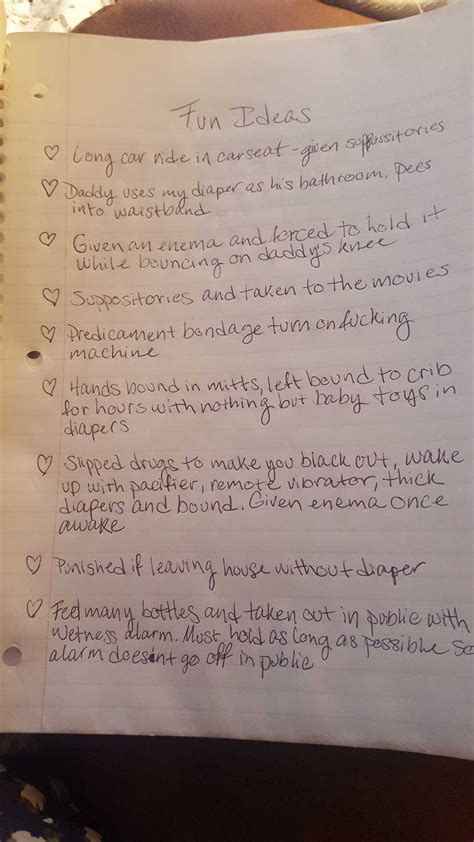 Fun Ideas
♡ Long car ride in carseat - given suppossitories
♡ Daddy uses my diaper as his bathroom, pees
into waistband
♡ Given an enema and forced to hold it
while bouncing on daddy's knee
♡ Suppositories and taken to the movies
♡ Predicament bondage turn on fucking
machine
♡ Hands bound in mitts, left bound to crib
for hours with nothing but baby toys in
diapers
♡ Slipped drugs to make you black out, wake
up with pacifier, remote vibrator, thick
diapers and bound. Given enema once
awake
♡ Punished if leaving house without diaper
♡ Feed many bottles and taken out in public with
wetness alarm. Must hold as long as possible so
alarm doesn't go off in public